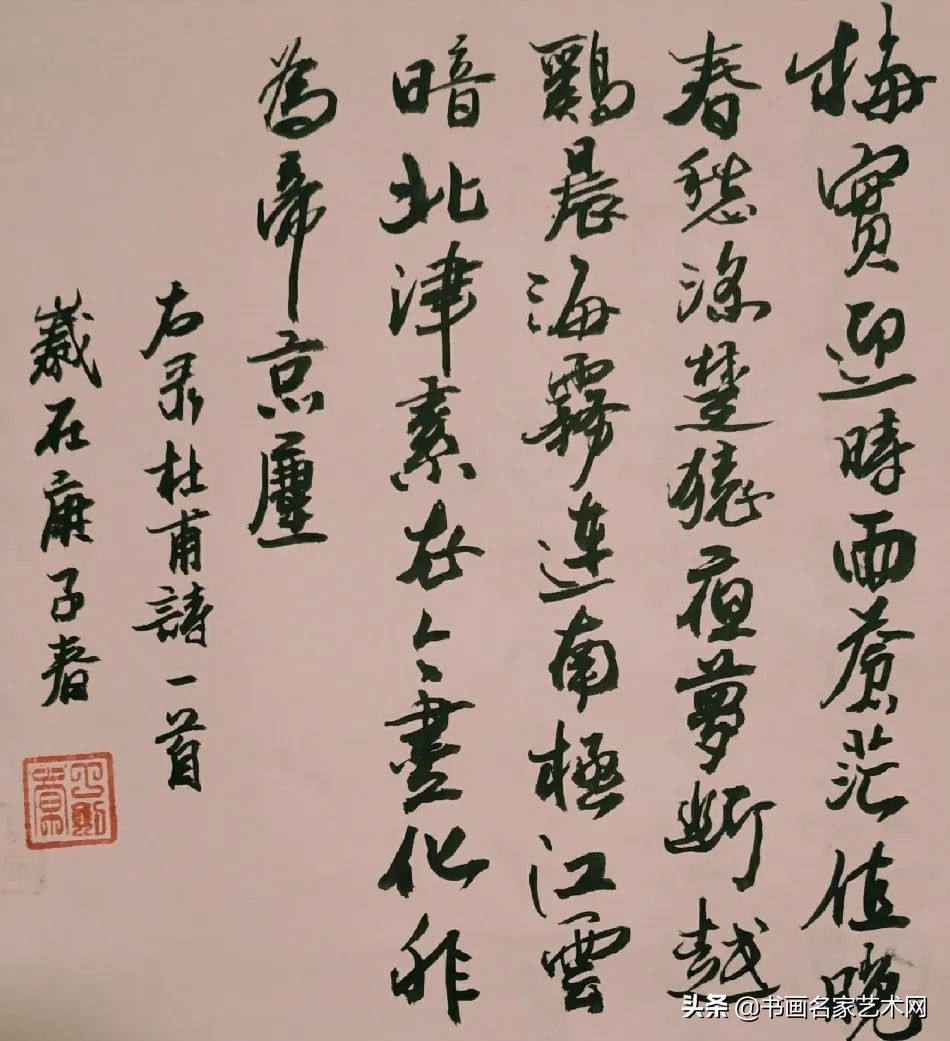 梅實迎時雨蒼茫值晚
春愁深楚猿夜夢斷越
鷄晨海霧連南極江雲
暗北津素衣今盡化非
為帝京塵
右录杜甫詩一首
歲在庚子春
头条 @书画名家艺术网